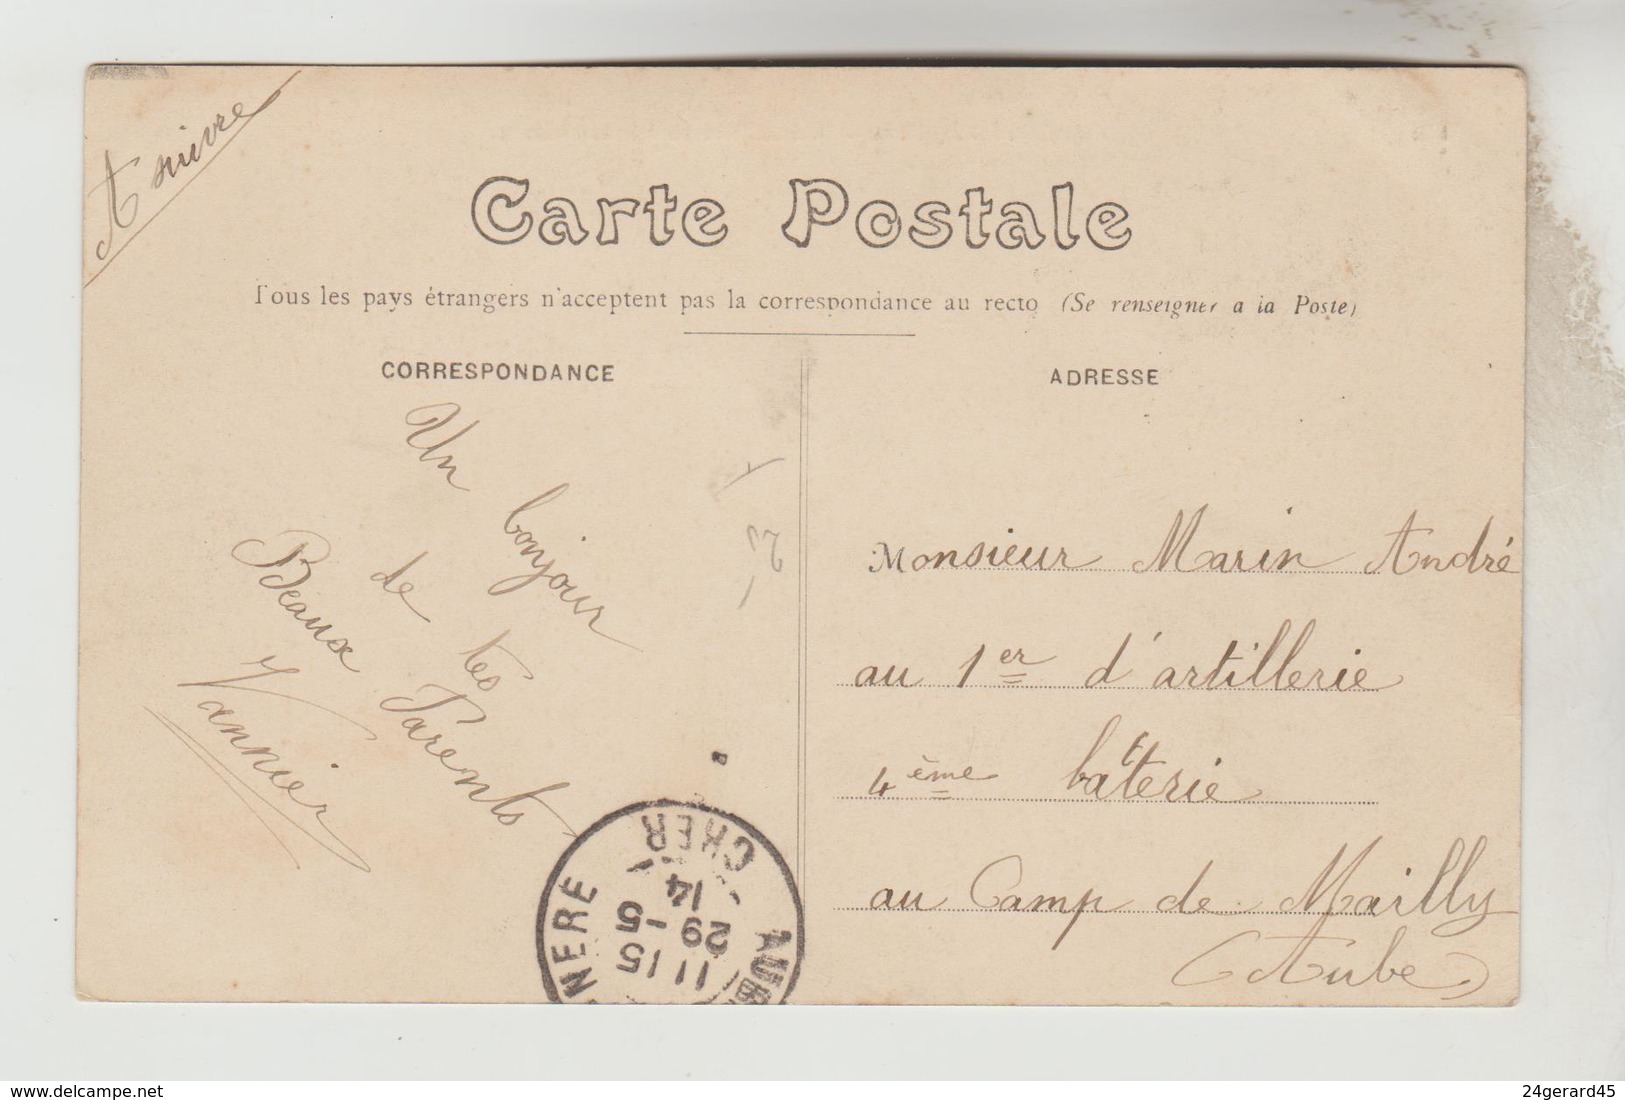 A suivre
Carte Postale
Tous les pays étrangers n'acceptent pas la correspondance au recto (Se renseigner a la Poste)
CORRESPONDANCE
ADRESSE
Un bonjour
de tes
Beaux Parents
Vannier
Monsieur Marin André
au 1er d'artillerie
4ème batterie
au Camp de Mailly
(Aube)
20
AUB NERE
CHER
1115
29-5
14
delcampe.net
24gerard45